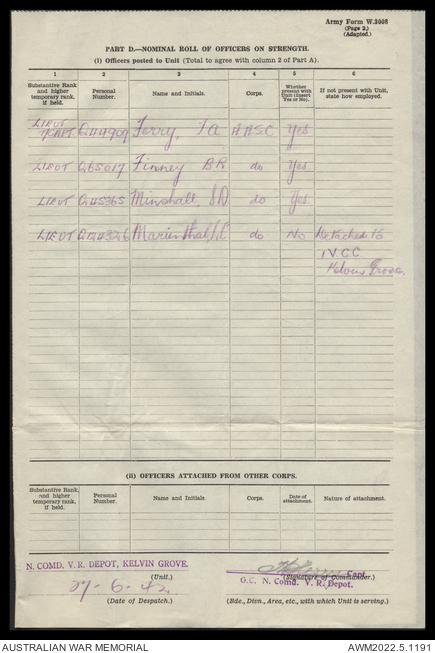 Army Form W.3008
(Page 2.)
(Adapted.)
PART D.—NOMINAL ROLL OF OFFICERS ON STRENGTH.
(i) Officers posted to Unit (Total to agree with column 2 of Part A).
1 2 3 4 5 6
Substantive Rank and higher temporary rank, if held. Personal Number. Name and Initials. Corps. Whether present with Unit (Insert Yes or No). If not present with Unit, state how employed.
LIEUT
T/CAPT. Q44909 Terry, FA AASC Yes
LIEUT Q65017 Finney BR do Yes
LIEUT Q45365 Minshall, SD do Yes
LIEUT Marienthal, do No Detached to
1 V.C.C.
Kelvin Grove.
(ii) OFFICERS ATTACHED FROM OTHER CORPS.
Substantive Rank and higher temporary rank, if held. Personal Number. Name and Initials. Corps. Date of attachment. Nature of attachment.
N. COMD. V. R. DEPOT, KELVIN GROVE.
(Unit.)
27-6-42
(Date of Despatch.)
Capt.
(Signature of Commander.)
O.C. N. Comd. V. R. Depot.
(Bde., Divn., Area, etc., with which Unit is serving.)
AUSTRALIAN WAR MEMORIAL
AWM2022.5.1191